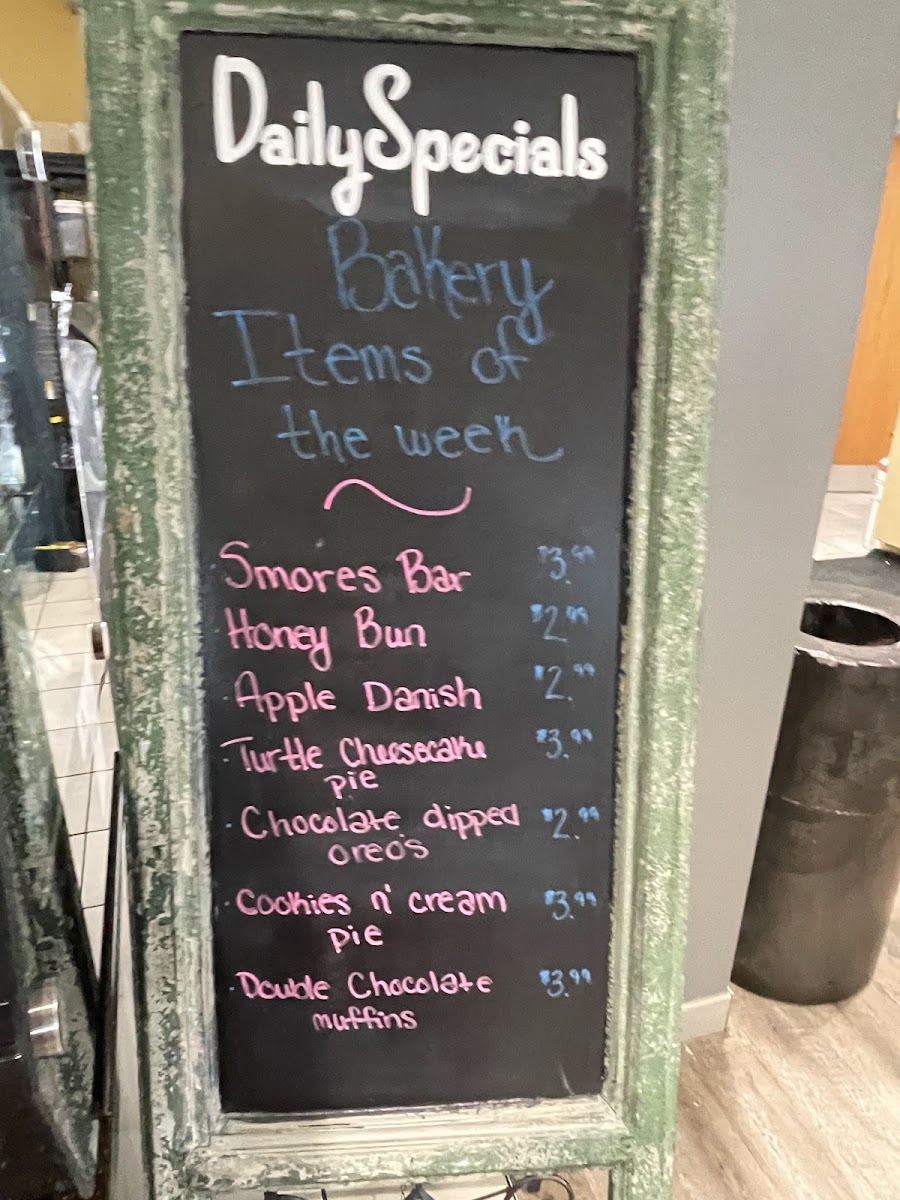 Daily Specials
Bakery
Items of
the week
Smores Bar $3.99
Honey Bun $2.99
Apple Danish $2.99
Turtle Cheesecake $3.99
pie
Chocolate dipped $2.99
oreo's
Cookies n' cream $3.99
pie
Double Chocolate $3.99
muffins